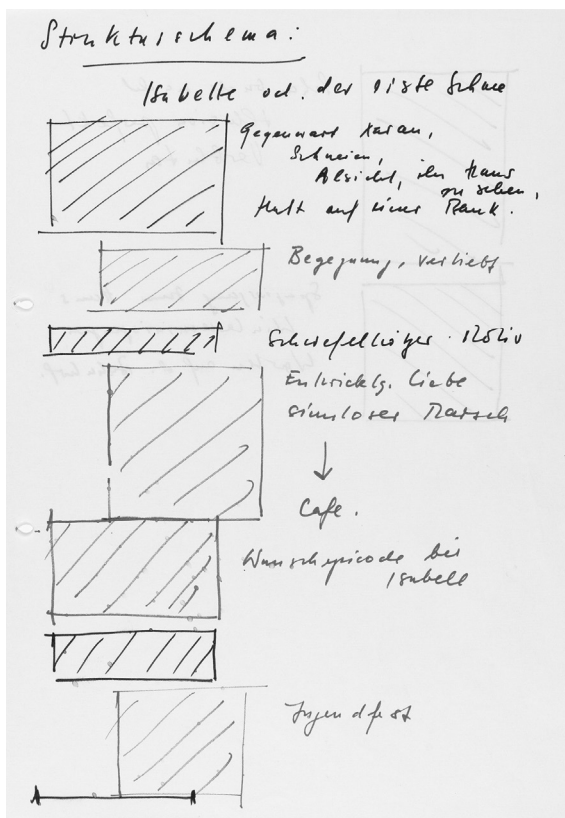 Strukturschema:
Isabelle od. der erste Schnee
Gegenwart daran,
Schneien,
Absicht, ihr Haus
zu sehen,
Halt auf einer Bank.
Begegnung, verliebt
Schiefelhöger. Motiv
Entwicklg. Liebe
sinnloser Marsch
Cafe.
Wunschepisode bei
Isabell
Jugendfest